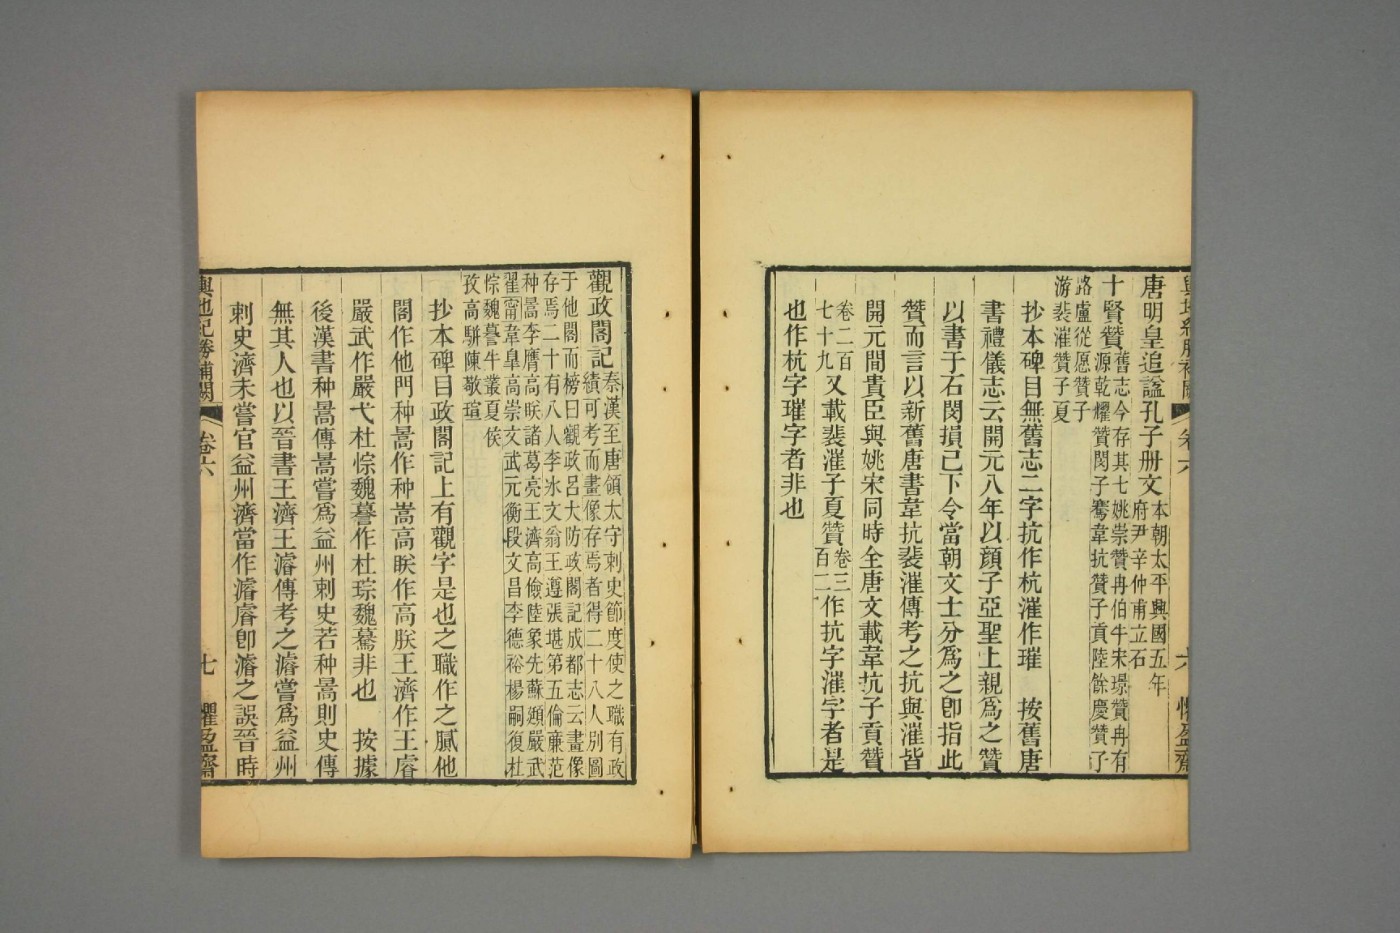 唐明皇追謚孔子册文本朝太平興國五年
府尹辛仲甫立石
十賢贊舊志今存其七姚崇贊冉伯牛宋璟贊冉有
源乾耀贊閔子騫韋抗贊子貢陸餘慶贊子
路盧從愿贊子
游裴漼贊子夏
抄本碑目無舊志二字抗作杭漼作璀　按舊唐
書禮儀志云開元八年以顔子亞聖上親爲之贊
以書于石閔損已下令當朝文士分爲之卽指此
贊而言以新舊唐書韋抗裴漼傳考之抗與漼皆
開元間貴臣與姚宋同時全唐文載韋抗子貢贊
卷二百
七十九又載裴漼子夏贊卷三
百二作抗字漼字者是
也作杭字璀字者非也
六　懼盈齋
觀政閣記秦漢至唐領太守刺史節度使之職有政
績可考而畫像存焉者得二十八人別圖
于他閣而榜曰觀政呂大防政閣記成都志云畫像
存焉二十有八人李冰文翁王遵張堪第五倫廉范
种暠李膺高眹諸葛亮王濟高儉陸象先蘇頲嚴武
翟甯韋臯高崇文武元衡段文昌李德裕楊嗣復杜
悰魏謩牛叢夏侯
孜高駢陳敬瑄
抄本碑目政閣記上有觀字是也之職作之膩他
閣作他門种暠作种嵩高眹作高朕王濟作王睿
嚴武作嚴弋杜悰魏謩作杜琮魏驀非也　按據
後漢書种暠傳暠嘗爲益州刺史若种嵩則史傳
無其人也以晉書王濟王濬傳考之濬嘗爲益州
刺史濟未嘗官益州濟當作濬睿卽濬之誤晉時
輿地紀勝補闕　卷六　七　懼盈齋